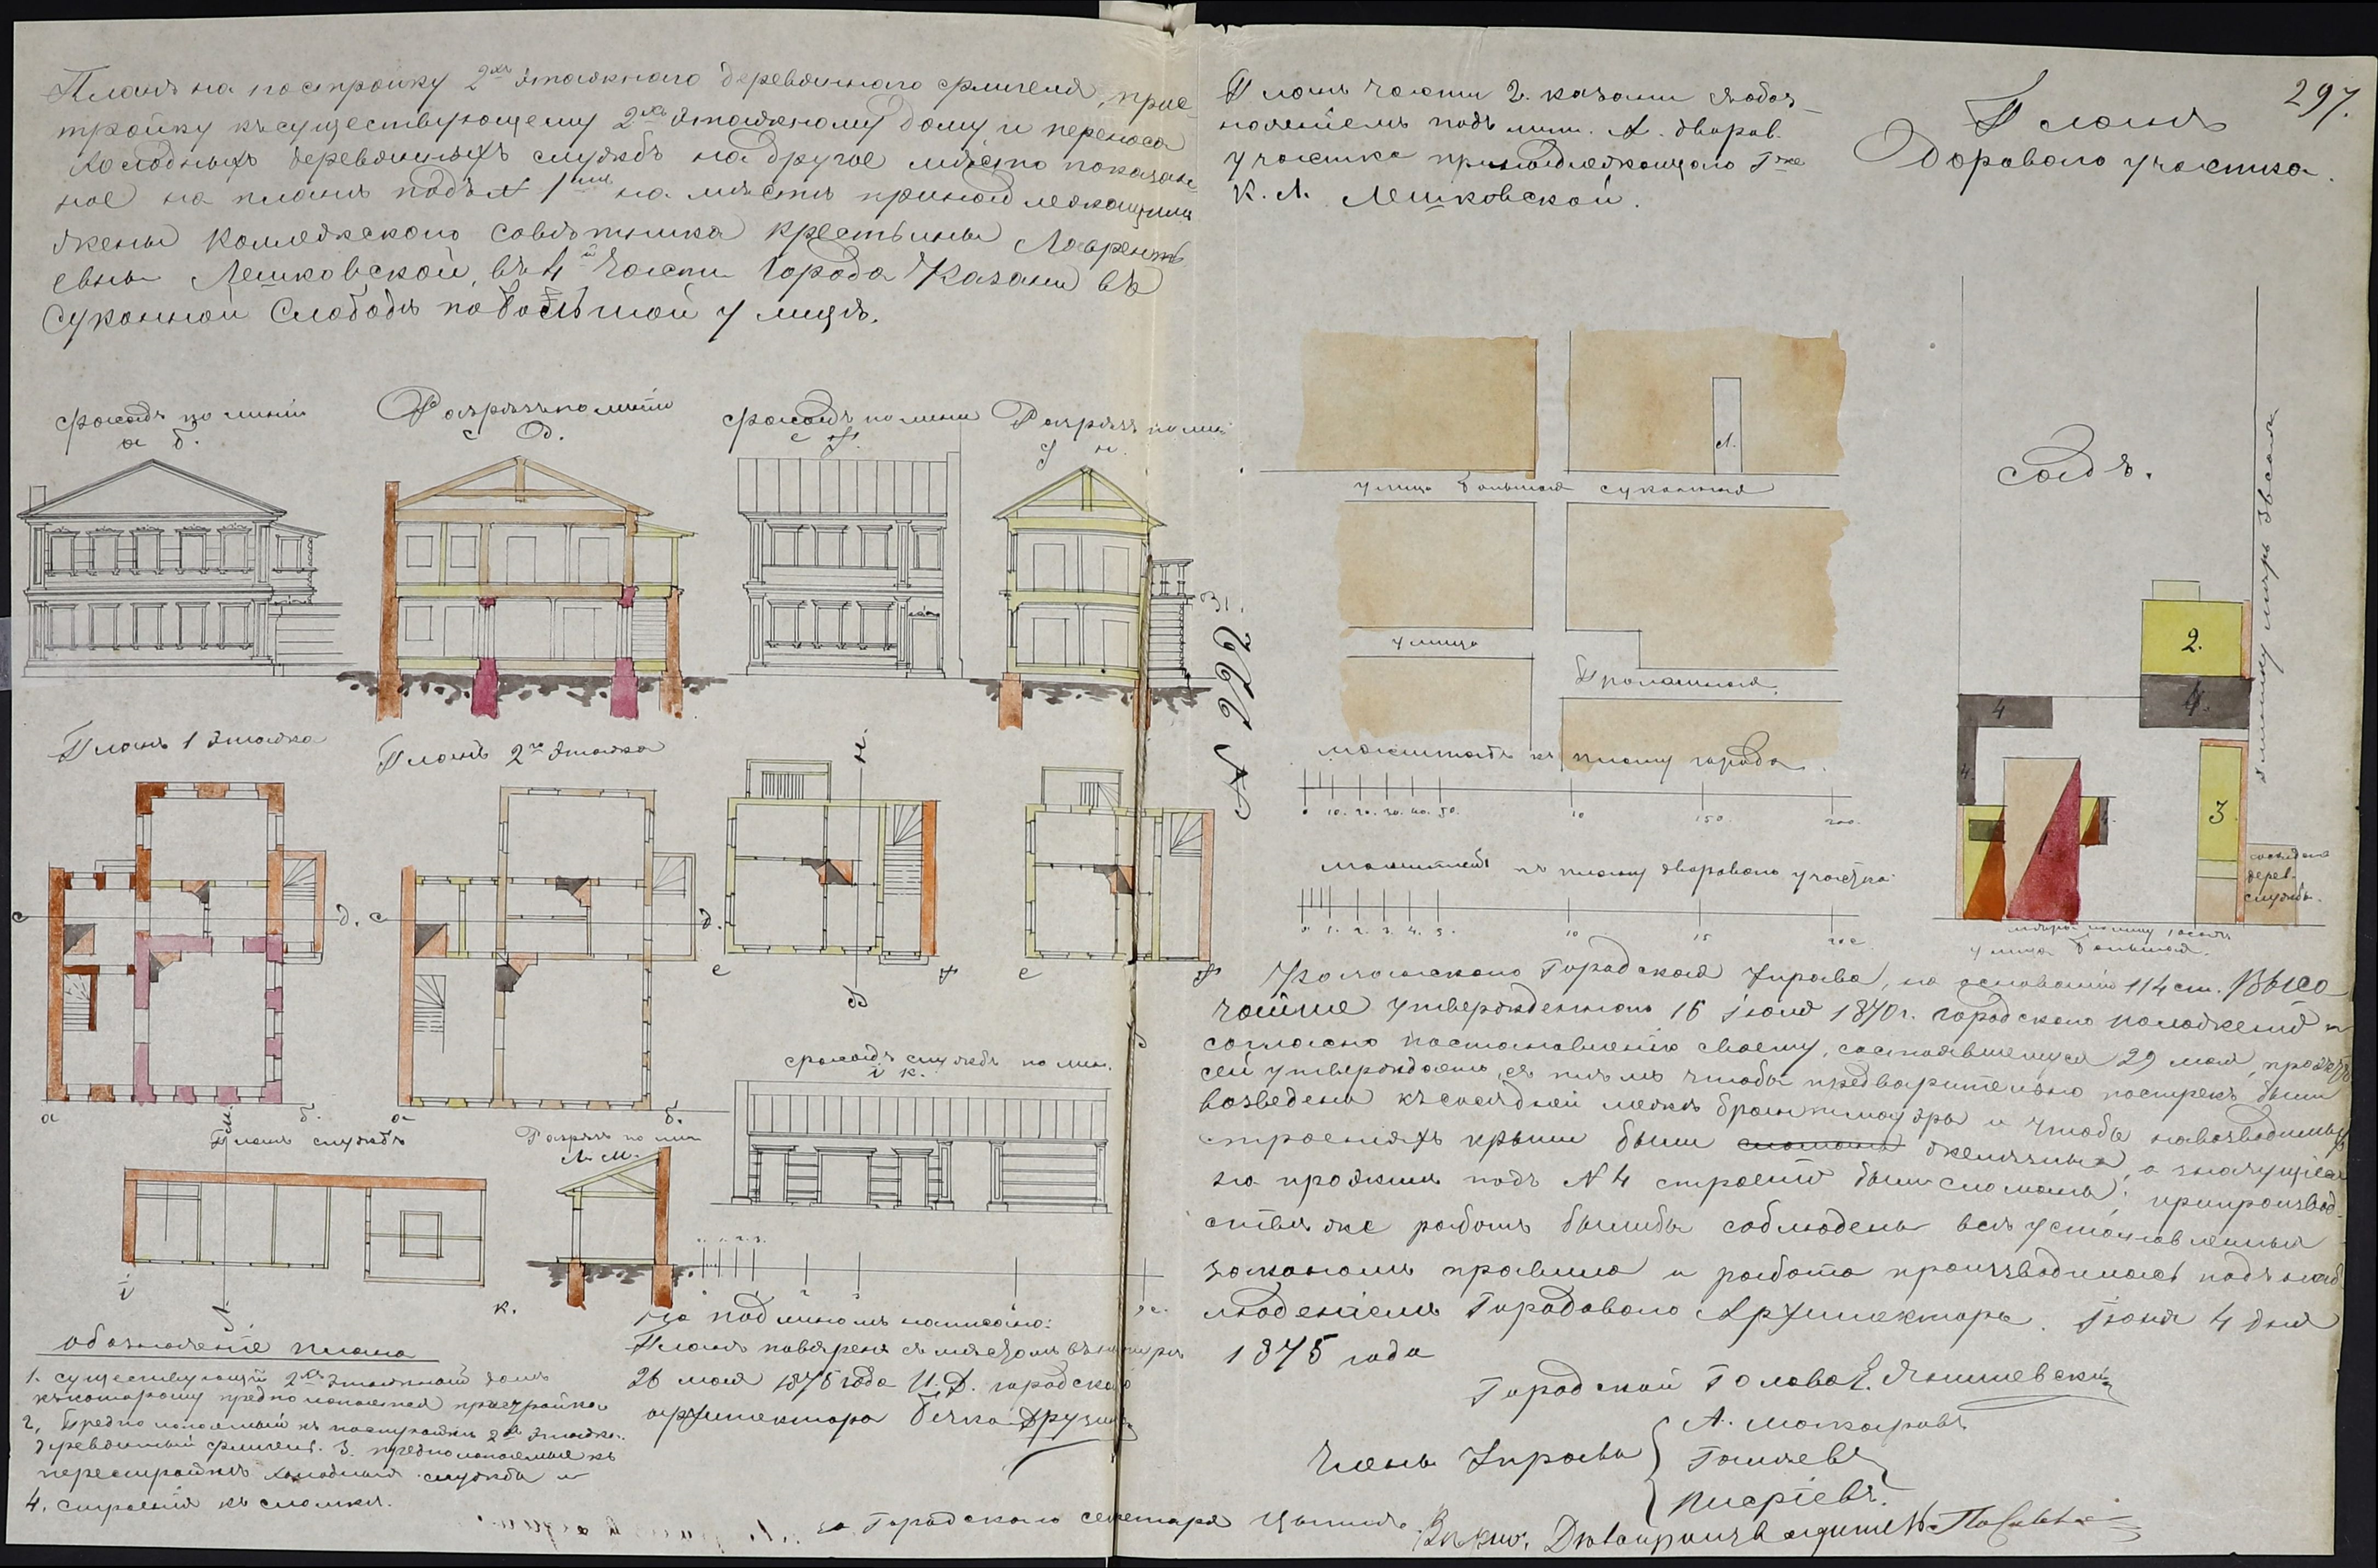 Планъ на постройку 2хъ этажнаго деревяннаго флигеля, прис-
тройку къ существующему 2хъ этажному дому и переноса
холодныхъ деревянныхъ службъ на другое мѣсто показан-
ное на планѣ подъ № 1мъ на мѣстѣ принадлежащимъ
жены Коллежскаго совѣтника Крестьины Лаврентъ-
евны Лешковской, въ 4й части города Казани въ
Суконной Слободѣ по Большой улицѣ.
Фасадъ по линіи
а б.
Разрѣзъ по линіи
с д.
Фасадъ по линіи
е ф.
Разрѣзъ по лин.
н.
Планъ 1 этажа
Планъ 2го этажа
с
д.
с
д.
а
б.
а
б.
е
ф
е
ф
Планъ службъ
Разрѣзъ по лин
Л. М.
Фасадъ службъ по лин.
i к.
i
к.
Обозначеніе плана
1. существующій 2хъ этажный домъ
къ которому предполагается пристройка
2, Предполагаемый къ постройкѣ 2хъ этажн.
деревянный флигель. 3. предполагаемыя къ
перестройкѣ холодныя службы и
4. строенія къ сломкѣ.
На подлиномъ написано:
Планъ повѣренъ съ мѣстомъ въ натурѣ
26 мая 1875 года И. Д. городскаго
архитектора Бечко-Друзинъ
за Городскаго секретаря
№ 222
Планъ части г. казани съ обоз-
наченіемъ подъ лит. А. дворов.
участка принадлежащаго Гже
К. Л. Лешковской.
Планъ
Двороваго участка.
297.
А.
улица большая суконная
улица
Проломная.
масштабъ къ плану города.
0 10. 20. 30. 40. 50. 150. 200.
масштабъ къ плану двороваго участка
0. 1. 2. 3. 4. 5. 10 15
садъ.
2.
4
4.
4.
3
сосѣдняя
дерев.
службы.
улица большая.
Казанская Городская Управа, на основаніи 114 ст. Высо-
чайше утвержденнаго 16 іюня 1870 г. Городскаго положенія и
согласно постановленію своему, состоявшемуся 29 мая, проэктъ
сей утверждаетъ, съ тѣмъ чтобы предварительно построекъ были
возведены къ сосѣдней межѣ брантмауэры и чтобы на возводимыхъ
строеніяхъ крыши были желѣзныя, а значущіеся
на проэктѣ подъ № 4 строенія были сломаны; при производ-
ствѣ же работъ былибы соблюдены всѣ установленныя
закономъ правила и работа производилась подъ наб-
людені­емъ Городоваго Архитектора. Іюня 4 дня
1875 года
Городской Голова Э. Янишевскій
Члены Управы
А. Макаровъ
Галѣевъ